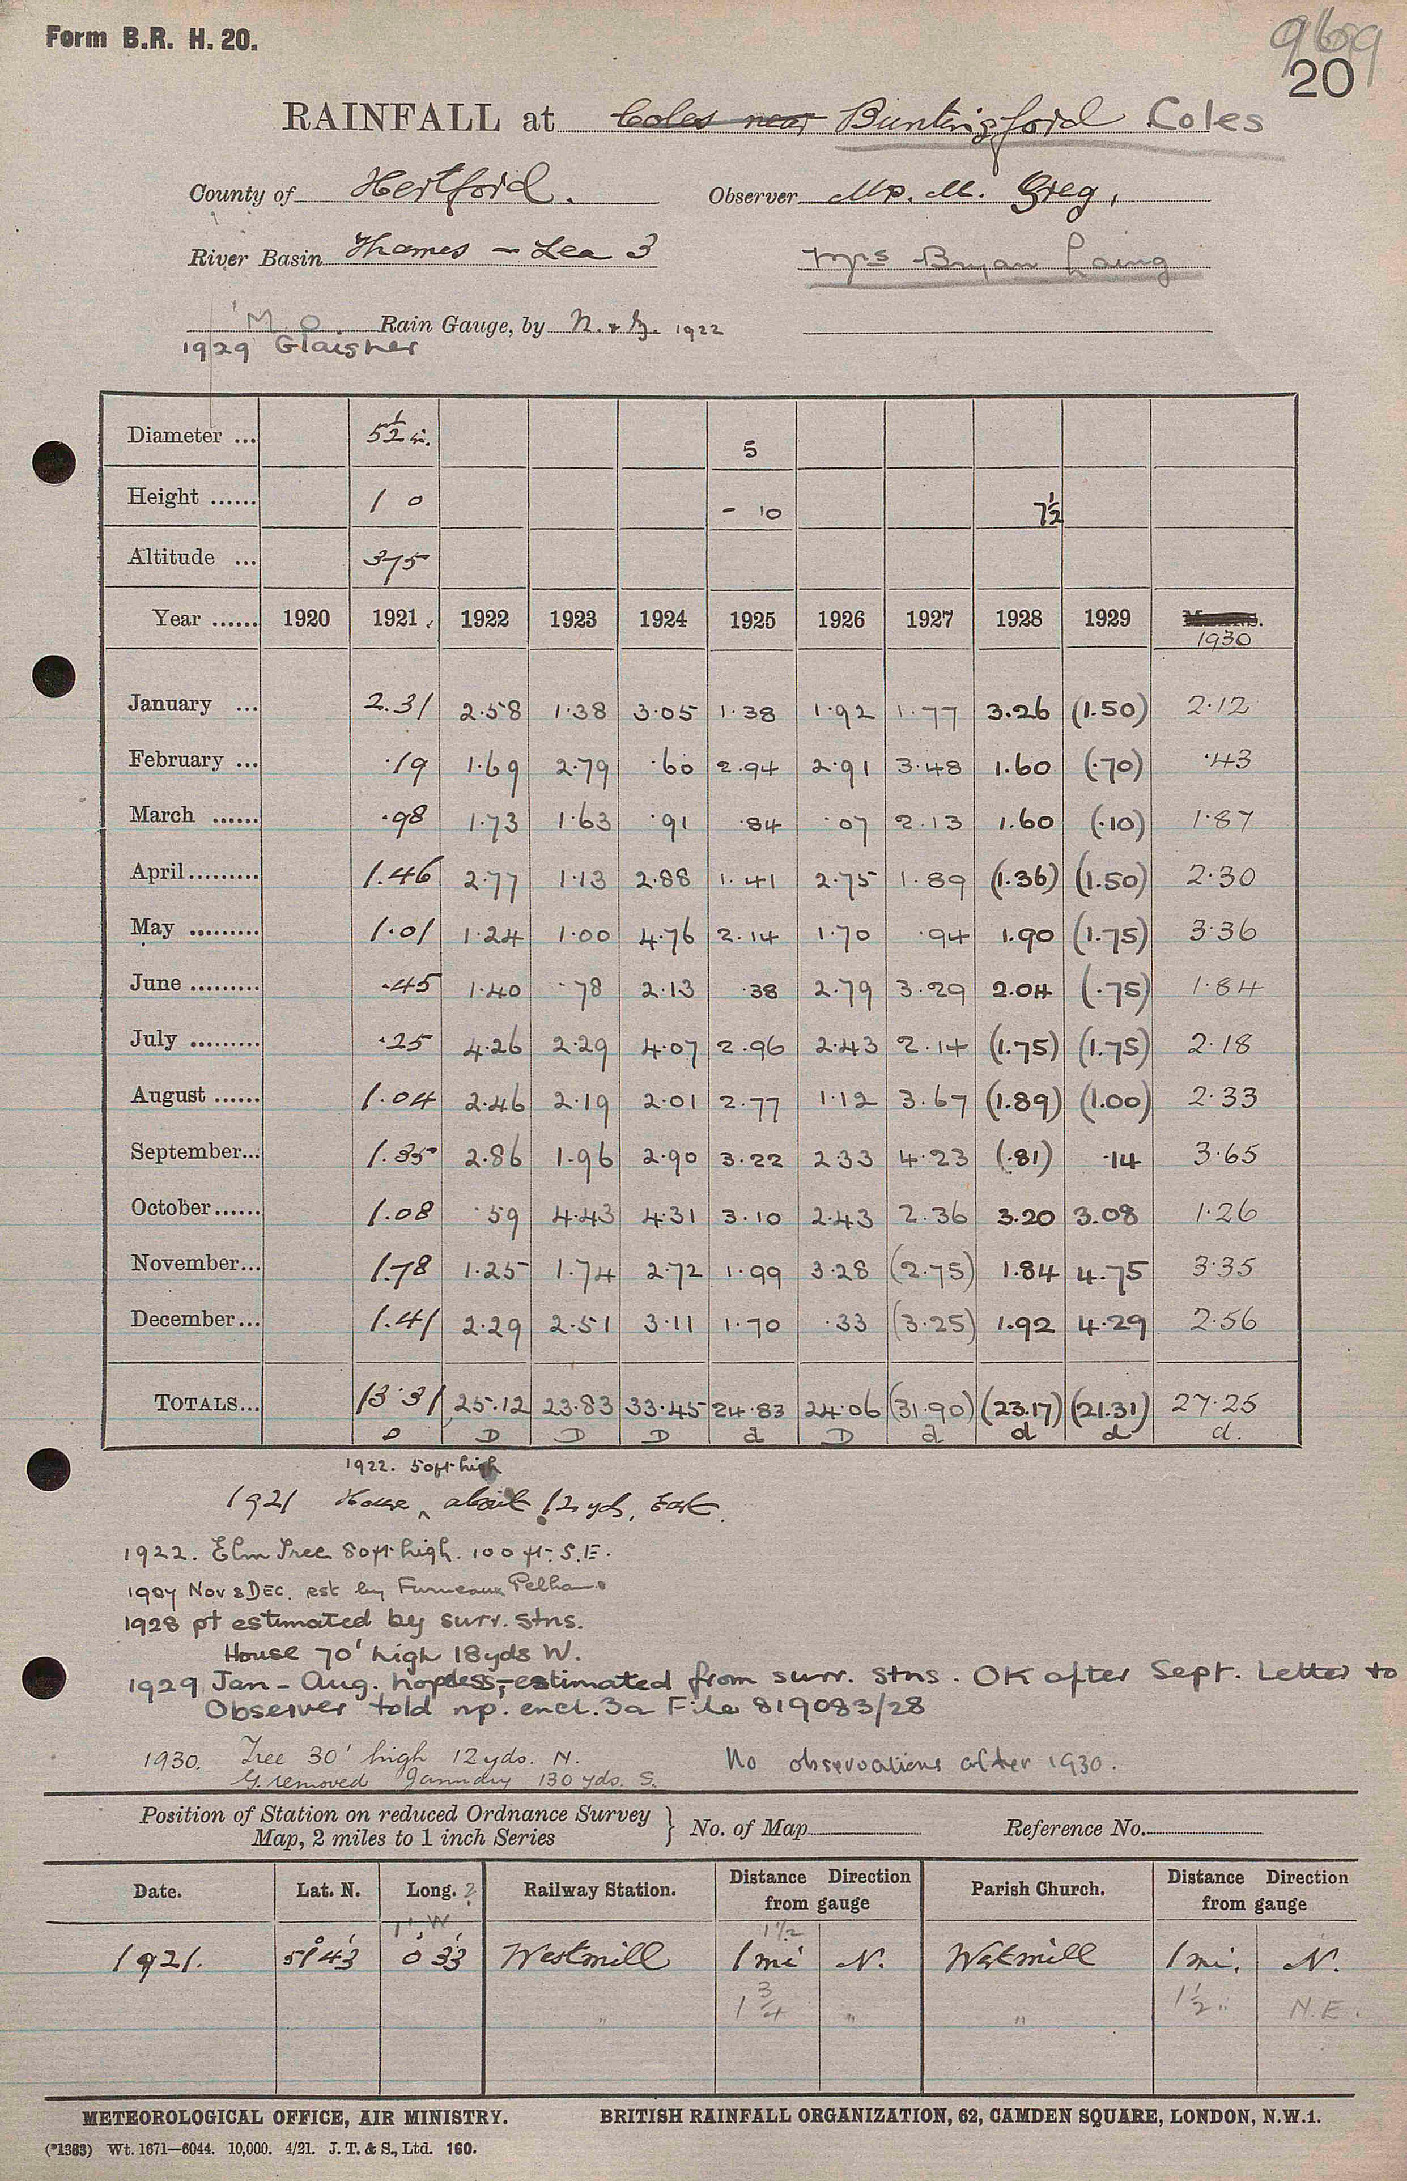 Form B.R. H. 20.
969
20
RAINFALL at Coles near Buntingford Coles
County of Hertford. Observer Mr. M. Greg,
River Basin Thames - Lea 3 Mrs Bryan Laing
M.O. Rain Gauge, by N. & Z. 1922
1929 Glaisher
Diameter ... 5½ in. 5
Height ...... 1 0 - 10 7½
Altitude ... 375
Year ...... 1920 1921 1922 1923 1924 1925 1926 1927 1928 1929
1930
January ... 2.31 2.58 1.38 3.05 1.38 1.92 1.77 3.26 (1.50) 2.12
February ... .19 1.69 2.79 .60 2.94 2.91 3.48 1.60 (.70) .43
March ...... .98 1.73 1.63 .91 .84 .07 2.13 1.60 (.10) 1.87
April......... 1.46 2.77 1.13 2.88 1.41 2.75 1.89 (1.36) (1.50) 2.30
May ......... 1.01 1.24 1.00 4.76 2.14 1.70 .94 1.90 (1.75) 3.36
June ......... .45 1.40 .78 2.13 .38 2.79 3.29 2.04 (.75) 1.84
July ......... .25 4.26 2.29 4.07 2.96 2.43 2.14 (1.75) (1.75) 2.18
August ...... 1.04 2.46 2.19 2.01 2.77 1.12 3.67 (1.89) (1.00) 2.33
September... 1.35 2.86 1.96 2.90 3.22 2.33 4.23 (.81) .14 3.65
October...... 1.08 .59 4.43 4.31 3.10 2.43 2.36 3.20 3.08 1.26
November... 1.78 1.25 1.74 2.72 1.99 3.28 (2.75) 1.84 4.75 3.35
December... 1.41 2.29 2.51 3.11 1.70 .33 (3.25) 1.92 4.29 2.56
TOTALS... 13.31 25.12 23.83 33.45 24.83 24.06 (31.90) (23.17) (21.31) 27.25
D D D D d D d d d d.
1922. 50ft high
1921 House ^ about 12 yds, East.
1922. Elm Tree 80ft high. 100 ft. S.E.
1927 Nov & DEC. est by Furneaux Pelham
1928 pt estimated by surr. stns.
House 70' high 18yds W.
1929 Jan - Aug. hopless, estimated from surr. stns. OK after Sept. Letter to
Observer told np. encl. 3a File 819083/28
1930. Tree 30' high 12 yds. N. No observations after 1930.
G. removed January 130 yds. S.
Position of Station on reduced Ordnance Survey
Map, 2 miles to 1 inch Series } No. of Map Reference No.
Date. Lat. N. Long. ? Railway Station. Distance Direction from gauge Parish Church. Distance Direction from gauge
1' W 1½
1921. 51° 43' 0° 33' Westmill 1 mi N. Westmill 1 mi. N.
" 1¾ " " 1½ " N.E.
METEOROLOGICAL OFFICE, AIR MINISTRY. BRITISH RAINFALL ORGANIZATION, 62, CAMDEN SQUARE, LONDON, N.W.1.
(*1383) Wt. 1671—6044. 10,000. 4/21. J. T. & S., Ltd. 160.